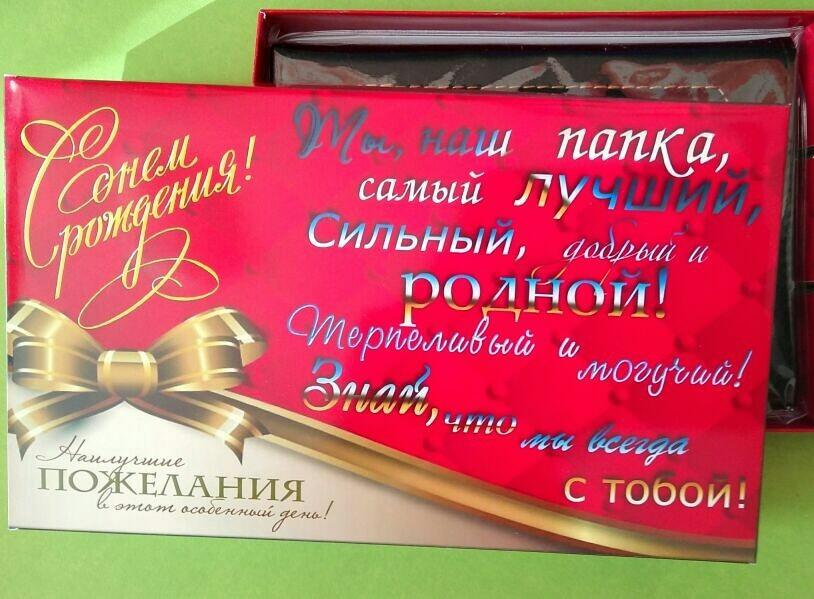 С днем
рождения!
Ты, наш папка,
самый лучший,
Сильный, добрый и
родной!
Терпеливый и могучий!
Знай, что мы всегда
с тобой!
Наилучшие
ПОЖЕЛАНИЯ
в этот особенный день!